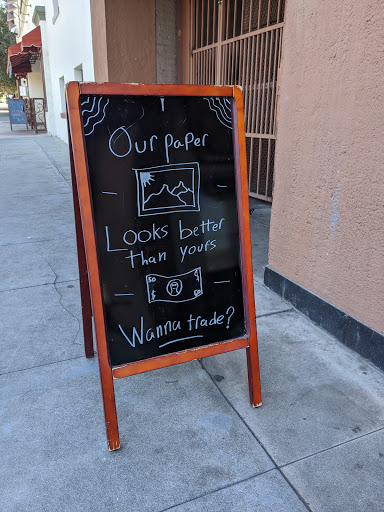 Our paper
Looks better
than yours
Wanna trade?